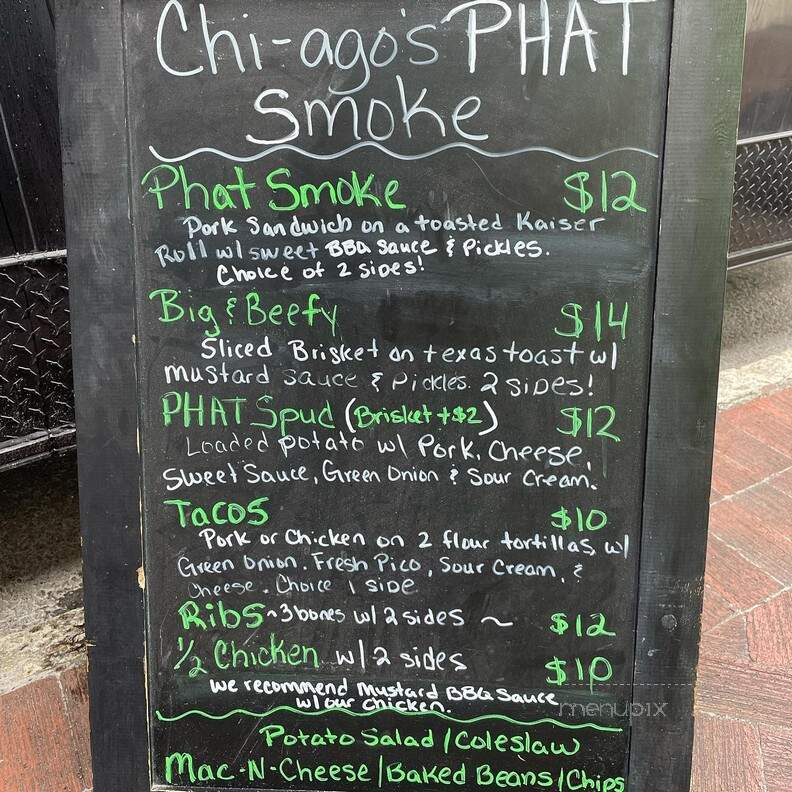 Chi-ago's PHAT
Smoke
Phat Smoke $12
Pork Sandwich on a toasted Kaiser
Roll w/ sweet BBQ Sauce & Pickles.
Choice of 2 sides!
Big & Beefy $14
Sliced Brisket on texas toast w/
mustard sauce & Pickles. 2 sides!
PHAT Spud (Brisket +$2) $12
Loaded potato w/ Pork, Cheese,
Sweet Sauce, Green Onion & Sour Cream.
Tacos $10
Pork or Chicken on 2 flour tortillas w/
Green Onion, Fresh Pico, Sour Cream, &
Cheese. Choice 1 side
Ribs ~ 3 bones w/ 2 sides ~ $12
1/2 Chicken w/ 2 sides $10
we recommend Mustard BBQ Sauce
w/ our Chicken.
menupix
Potato Salad / Coleslaw
Mac-N-Cheese | Baked Beans | Chips